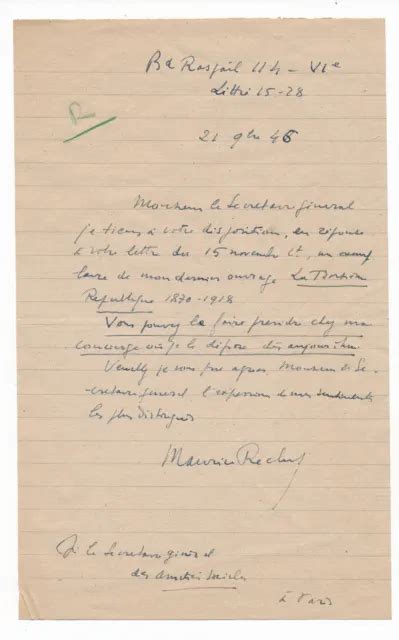 Bd Raspail 114 - VIe
Littré 15-28
21 9bre 46
R
Monsieur le Secrétaire général
je tiens à votre disposition, en réponse
à votre lettre du 15 novembre ct, un exem-
plaire de mon dernier ouvrage La Troisième
République 1870-1918
Vous pouvez le faire prendre chez ma
concierge où je le dépose dès aujourd'hui.
Veuillez je vous prie agréer, Monsieur le Se-
crétaire général l'expression de mes sentiments
les plus distingués
Maurice Reclus
le Secrétaire général
des
à Paris